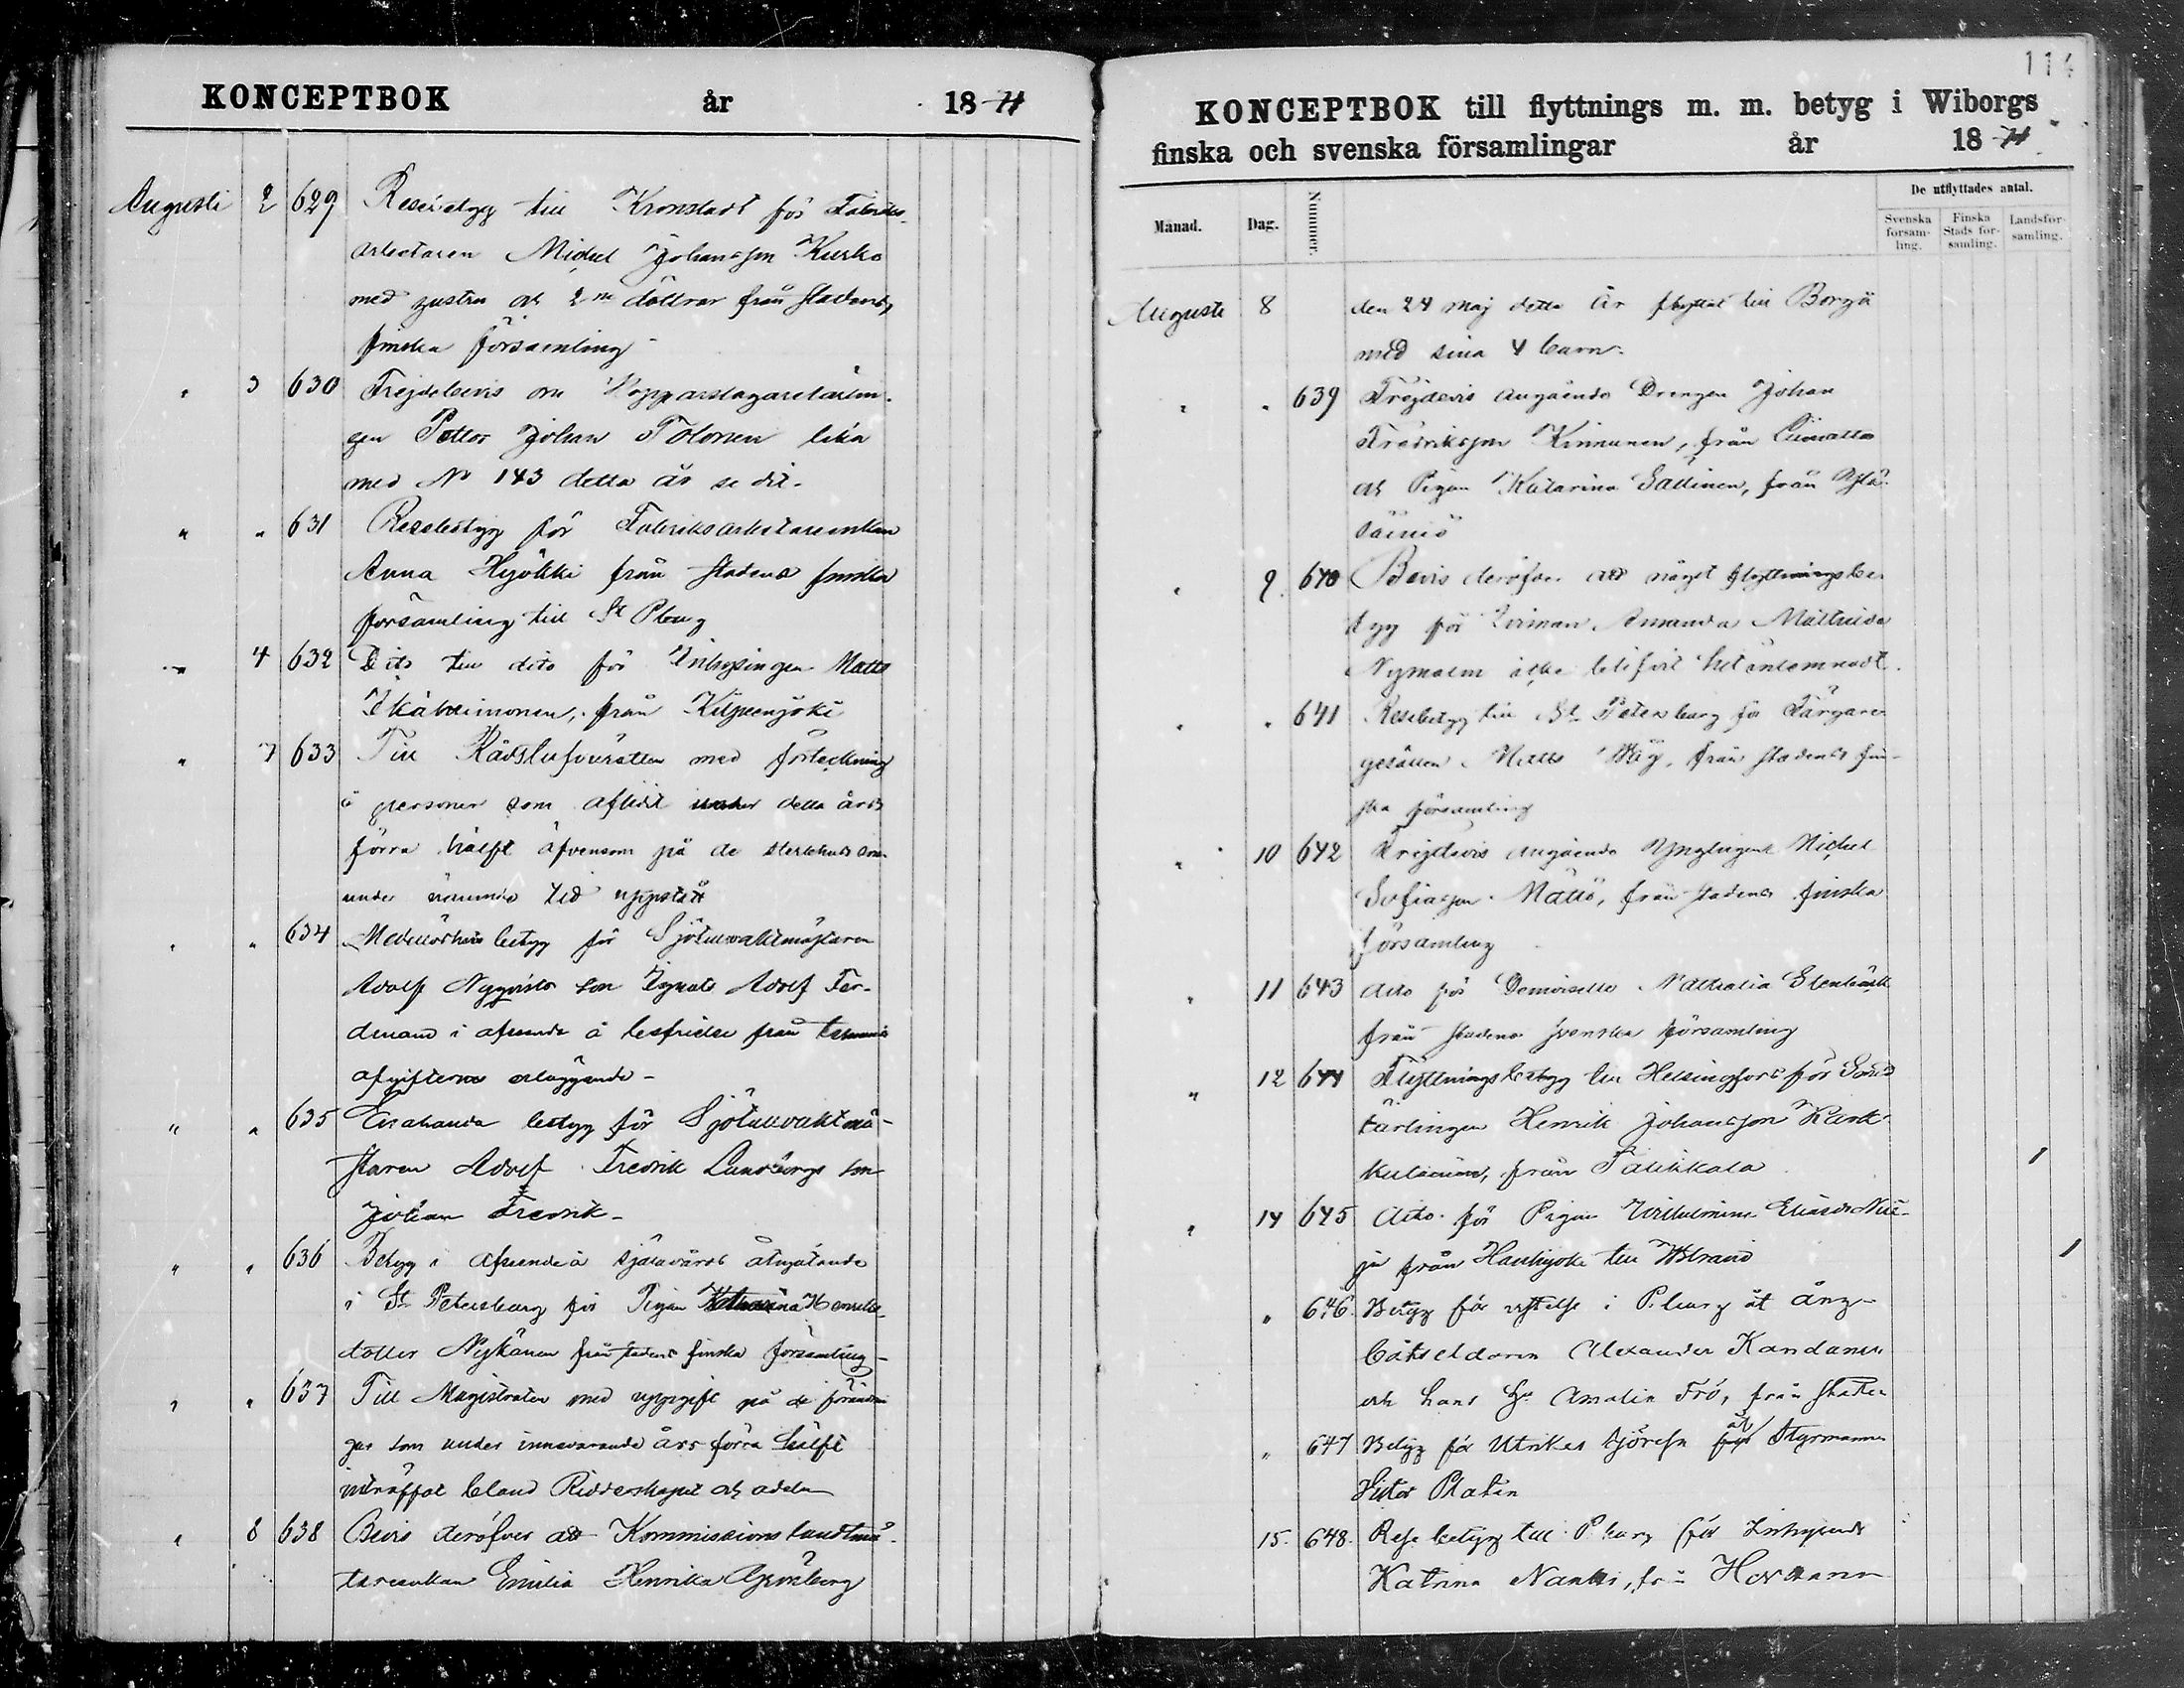 KONCEPTBOK år 1871
Augusti 2 629 Resebetyg till Kronstadt för Fabriks-
arbetaren Michel Johansson Kurko
med hustru och 2ne döttrar från stadens
finska församling
" 3 630 Frejdebevis om Kopparslagarelärlin-
gen Petter Johan Tolonen lika
med No 143 detta år se dit.
" " 631 Resebetyg för Fabriksarbetareenkan
Anna Hyökki från stadens finska
församling till St Pburg
" 4 632 Dito till dito för Inhysingen Matts
Ikäheimonen, från Kilpeenjoki
" 7 633 Till Rådstufvurätten med förteckning
å personer som aflidit under detta års
förra hälft äfvensom på de sterbhus som
under nämnde tid uppstått
" " 634 Medellöshets betyg för Sjötullvaktmästaren
Adolf Nyqvists son Ignats Adolf Fer-
dinand i afseende å befrielse från termins
afgifternas erläggande -
" " 635 Enahanda betyg för Sjötullvaktmä-
staren Adolf Fredrik Lundbergs son
Johan Fredrik -
" " 636 Betyg i afseende å själavårds åtnjutande
i St Petersburg för Pigan Katarina Henriks-
dotter Nyskänen från stadens finska församling -
" " 637 Till Magistraten med uppgift på de förändrin
gar som under innevarande års förra hälft
inträffat bland Ridderskapet och adeln
" 8 638 Bevis deröfver att Kommissions landtmä-
tareenkan Emilia Henrika Grönberg
114
KONCEPTBOK till flyttnings m. m. betyg i Wiborgs
finska och svenska församlingar år 1871
De utflyttades antal.
Månad. Dag. Nummer. Svenska församling. Finska Stads församling. Landsförsamling.
Augusti 8 den 24 Maj detta år flyttat till Borgå
med sina 4 barn.
" " 639 Frejdevis angående Drengen Johan
Fredriksson Kinnunen, från Liimatta
och Pigan Katarina Sallinen, från Ylä-
säiniö
" 9. 640 Bevis deröfver att något flyttningsbe-
tyg för Amanda Mathilda
Nymalm icke blifvit hit inlemnadt.
" " 641 Resebetyg till St Petersburg för Färgare
gesällen Matts Mäg, från stadens fin-
ska församling
" 10 642 Frejdevis angående Ynglingen Michel
Sofiasson Mattö, från stadens finska
församling
" 11 643 dito för Demoiselle Nathalia Stenbäck
från stadens svenska församling
" 12 644 Flyttningsbetyg till Helsingfors för
lärlingen Henrik Johansson Kark-
kulainen, från Talikkala 1
" 14 645 dito för Pigan Wilhelmina Eliasdr
från Hanhijoki till Wstrand 1
" 646. Betyg för vistelse i P.burg åt ång-
båtseldaren Alexander Kandanen
och hans h. Amalia Frö, från staden
" 647 Betyg för Utrikes sjöresa åt Styrmannen
Viktor Platin
15. 648. Rese betyg till P.burg för Inhysende
Katrina Nanki, från Hovinanne